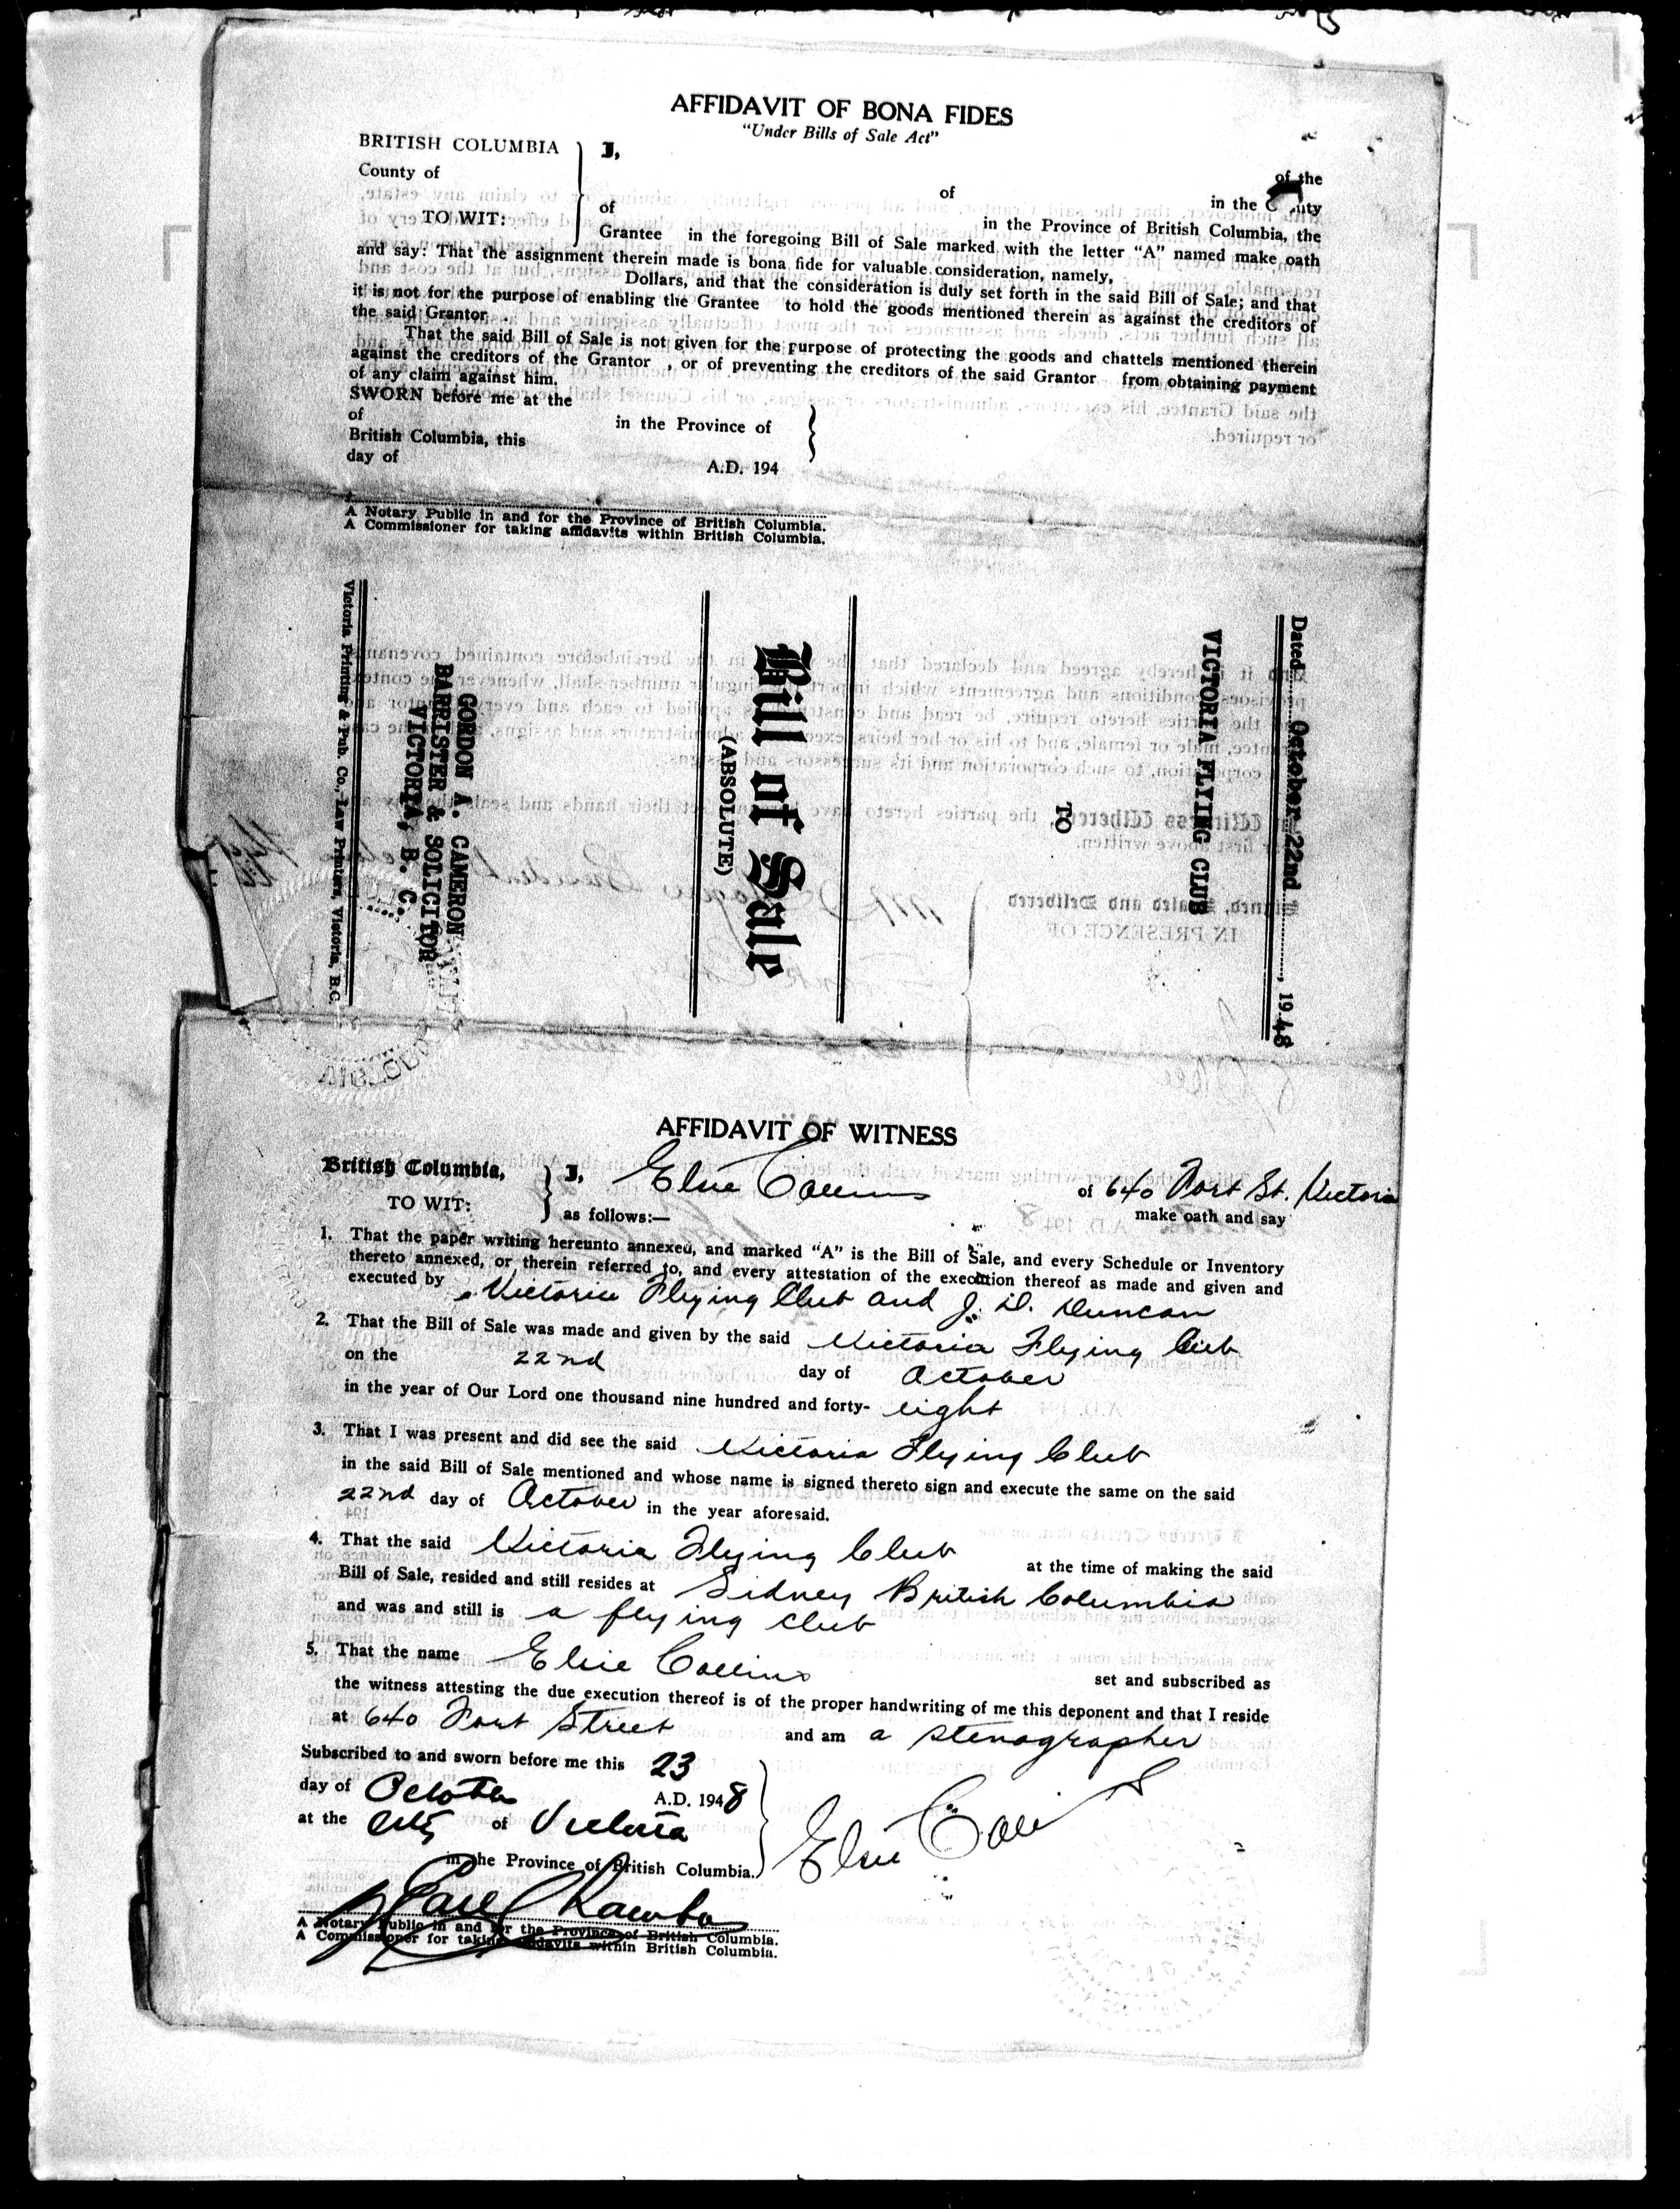 AFFIDAVIT OF BONA FIDES
"Under Bills of Sale Act"
BRITISH COLUMBIA
County of
TO WIT:
I,
of the
of in the County
of in the Province of British Columbia, the
Grantee in the foregoing Bill of Sale marked with the letter "A" named make oath
and say: That the assignment therein made is bona fide for valuable consideration, namely,
Dollars, and that the consideration is duly set forth in the said Bill of Sale; and that
it is not for the purpose of enabling the Grantee to hold the goods mentioned therein as against the creditors of
the said Grantor .
That the said Bill of Sale is not given for the purpose of protecting the goods and chattels mentioned therein
against the creditors of the Grantor , or of preventing the creditors of the said Grantor from obtaining payment
of any claim against him.
SWORN before me at the
of in the Province of
British Columbia, this
day of A.D. 194
A Notary Public in and for the Province of British Columbia.
A Commissioner for taking affidavits within British Columbia.
Dated October 22nd, 1948
VICTORIA FLYING CLUB
TO
Bill of Sale
(ABSOLUTE)
GORDON A. CAMERON
BARRISTER & SOLICITOR
VICTORIA, B. C.
Victoria Printing & Pub. Co., Law Printers, Victoria, B.C.
AFFIDAVIT OF WITNESS
British Columbia,
TO WIT:
I, Elsie Collins of 640 Fort St. Victoria
make oath and say
as follows:—
1. That the paper writing hereunto annexed, and marked "A" is the Bill of Sale, and every Schedule or Inventory
thereto annexed, or therein referred to, and every attestation of the execution thereof as made and given and
executed by Victoria Flying Club and J. D. Duncan
2. That the Bill of Sale was made and given by the said Victoria Flying Club
on the 22nd day of October
in the year of Our Lord one thousand nine hundred and forty- eight
3. That I was present and did see the said Victoria Flying Club
in the said Bill of Sale mentioned and whose name is signed thereto sign and execute the same on the said
22nd day of October in the year aforesaid.
4. That the said Victoria Flying Club at the time of making the said
Bill of Sale, resided and still resides at Sidney British Columbia
and was and still is a flying club
5. That the name Elsie Collins set and subscribed as
the witness attesting the due execution thereof is of the proper handwriting of me this deponent and that I reside
at 640 Fort Street and am a stenographer
Subscribed to and sworn before me this 23
day of October A.D. 1948
at the City of Victoria
in the Province of British Columbia.
Elsie Collins
A Notary Public in and for the Province of British Columbia.
A Commissioner for taking affidavits within British Columbia.